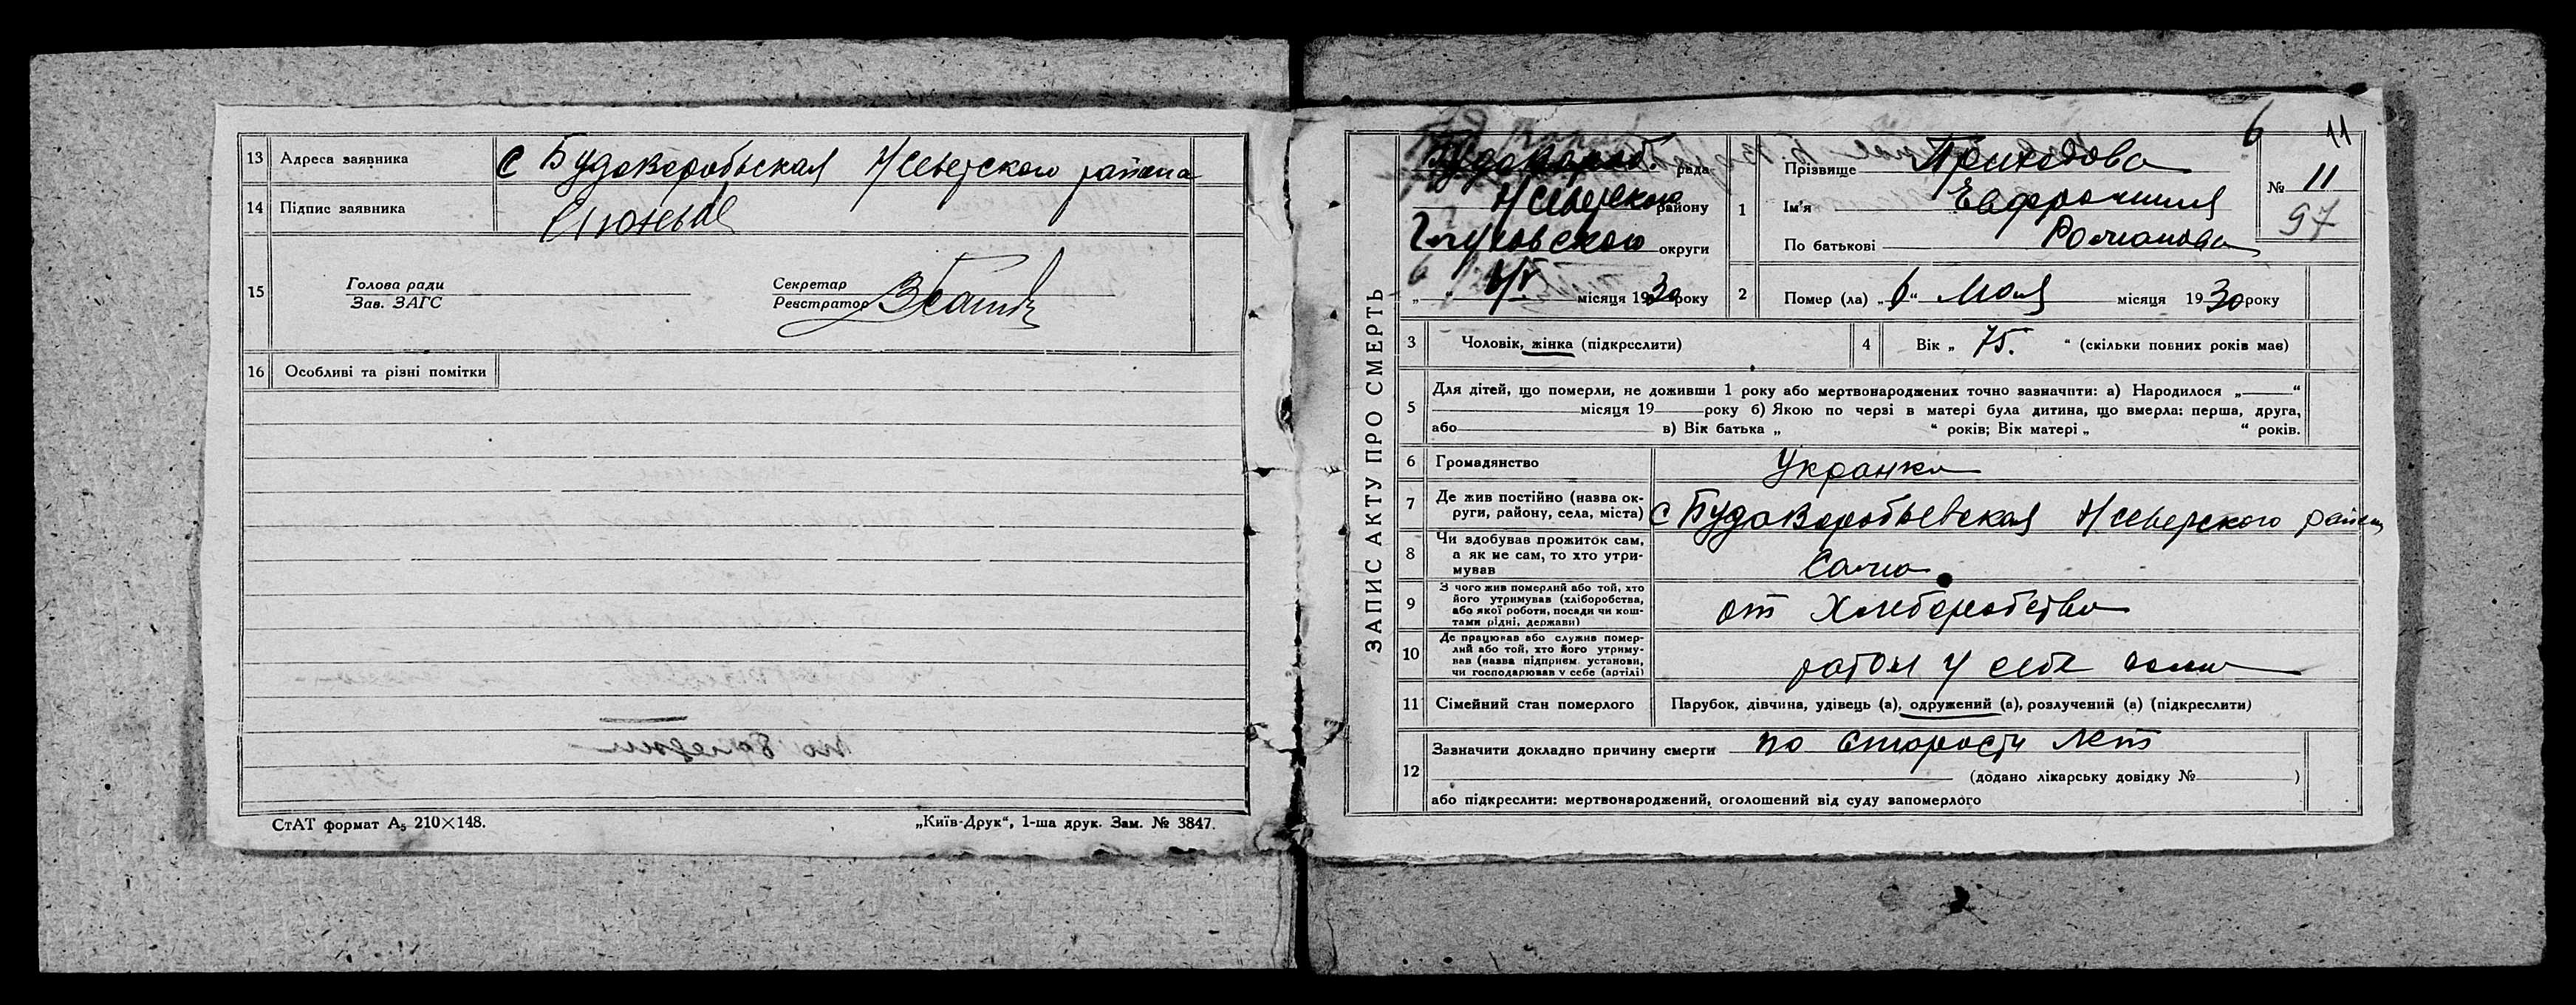 13 Адреса заявника с Будаворобьская Н/Северского района
14 Підпис заявника
15 Голова ради
Зав. ЗАГС
Секретар
Реєстратор
16 Особливі та різні помітки
СтАТ формат А₅ 210×148.
„Київ-Друк“, 1-ша друк. Зам. № 3847.
6 11
ЗАПИС АКТУ ПРО СМЕРТЬ
Будовороб. рада
Н/Северского району
Глуховского округи
„ “ 6/V місяця 1930 року
1 Прізвище Приходова
Ім'я Евфросиния
По батькові Романовна
№ 11
97
2 Помер (ла) „6“ Мая місяця 1930 року
3 Чоловік, жінка (підкреслити)
4 Вік „ 75. “ (скільки повних років має)
5 Для дітей, що померли, не доживши 1 року або мертвонароджених точно зазначити: а) Народилося „ “
місяця 19 року б) Якою по черзі в матері була дитина, що вмерла: перша, друга,
або в) Вік батька „ “ років; Вік матері „ “ років.
6 Громадянство Укранка
7 Де жив постійно (назва ок-
руги, району, села, міста) с Будаворобьевская Н/Северского район
8 Чи здобував прожиток сам,
а як не сам, то хто утри-
мував Сама
9 З чого жив померлий або той, хто
його утримував (хліборобства,
або якої роботи, посади чи кош-
тами рідні, держави) от Хлеборобства
10 Де працював або служив помер-
лий або той, хто його утриму-
вав (назва підприєм. установи,
чи господарював у себе (артілі) у себе
11 Сімейний стан померлого Парубок, дівчина, удівець (а), одружений (а), розлучений (а) (підкреслити)
12 Зазначити докладно причину смерти по старости лет
(додано лікарську довідку № )
або підкреслити: мертвонароджений, оголошений від суду запомерлого